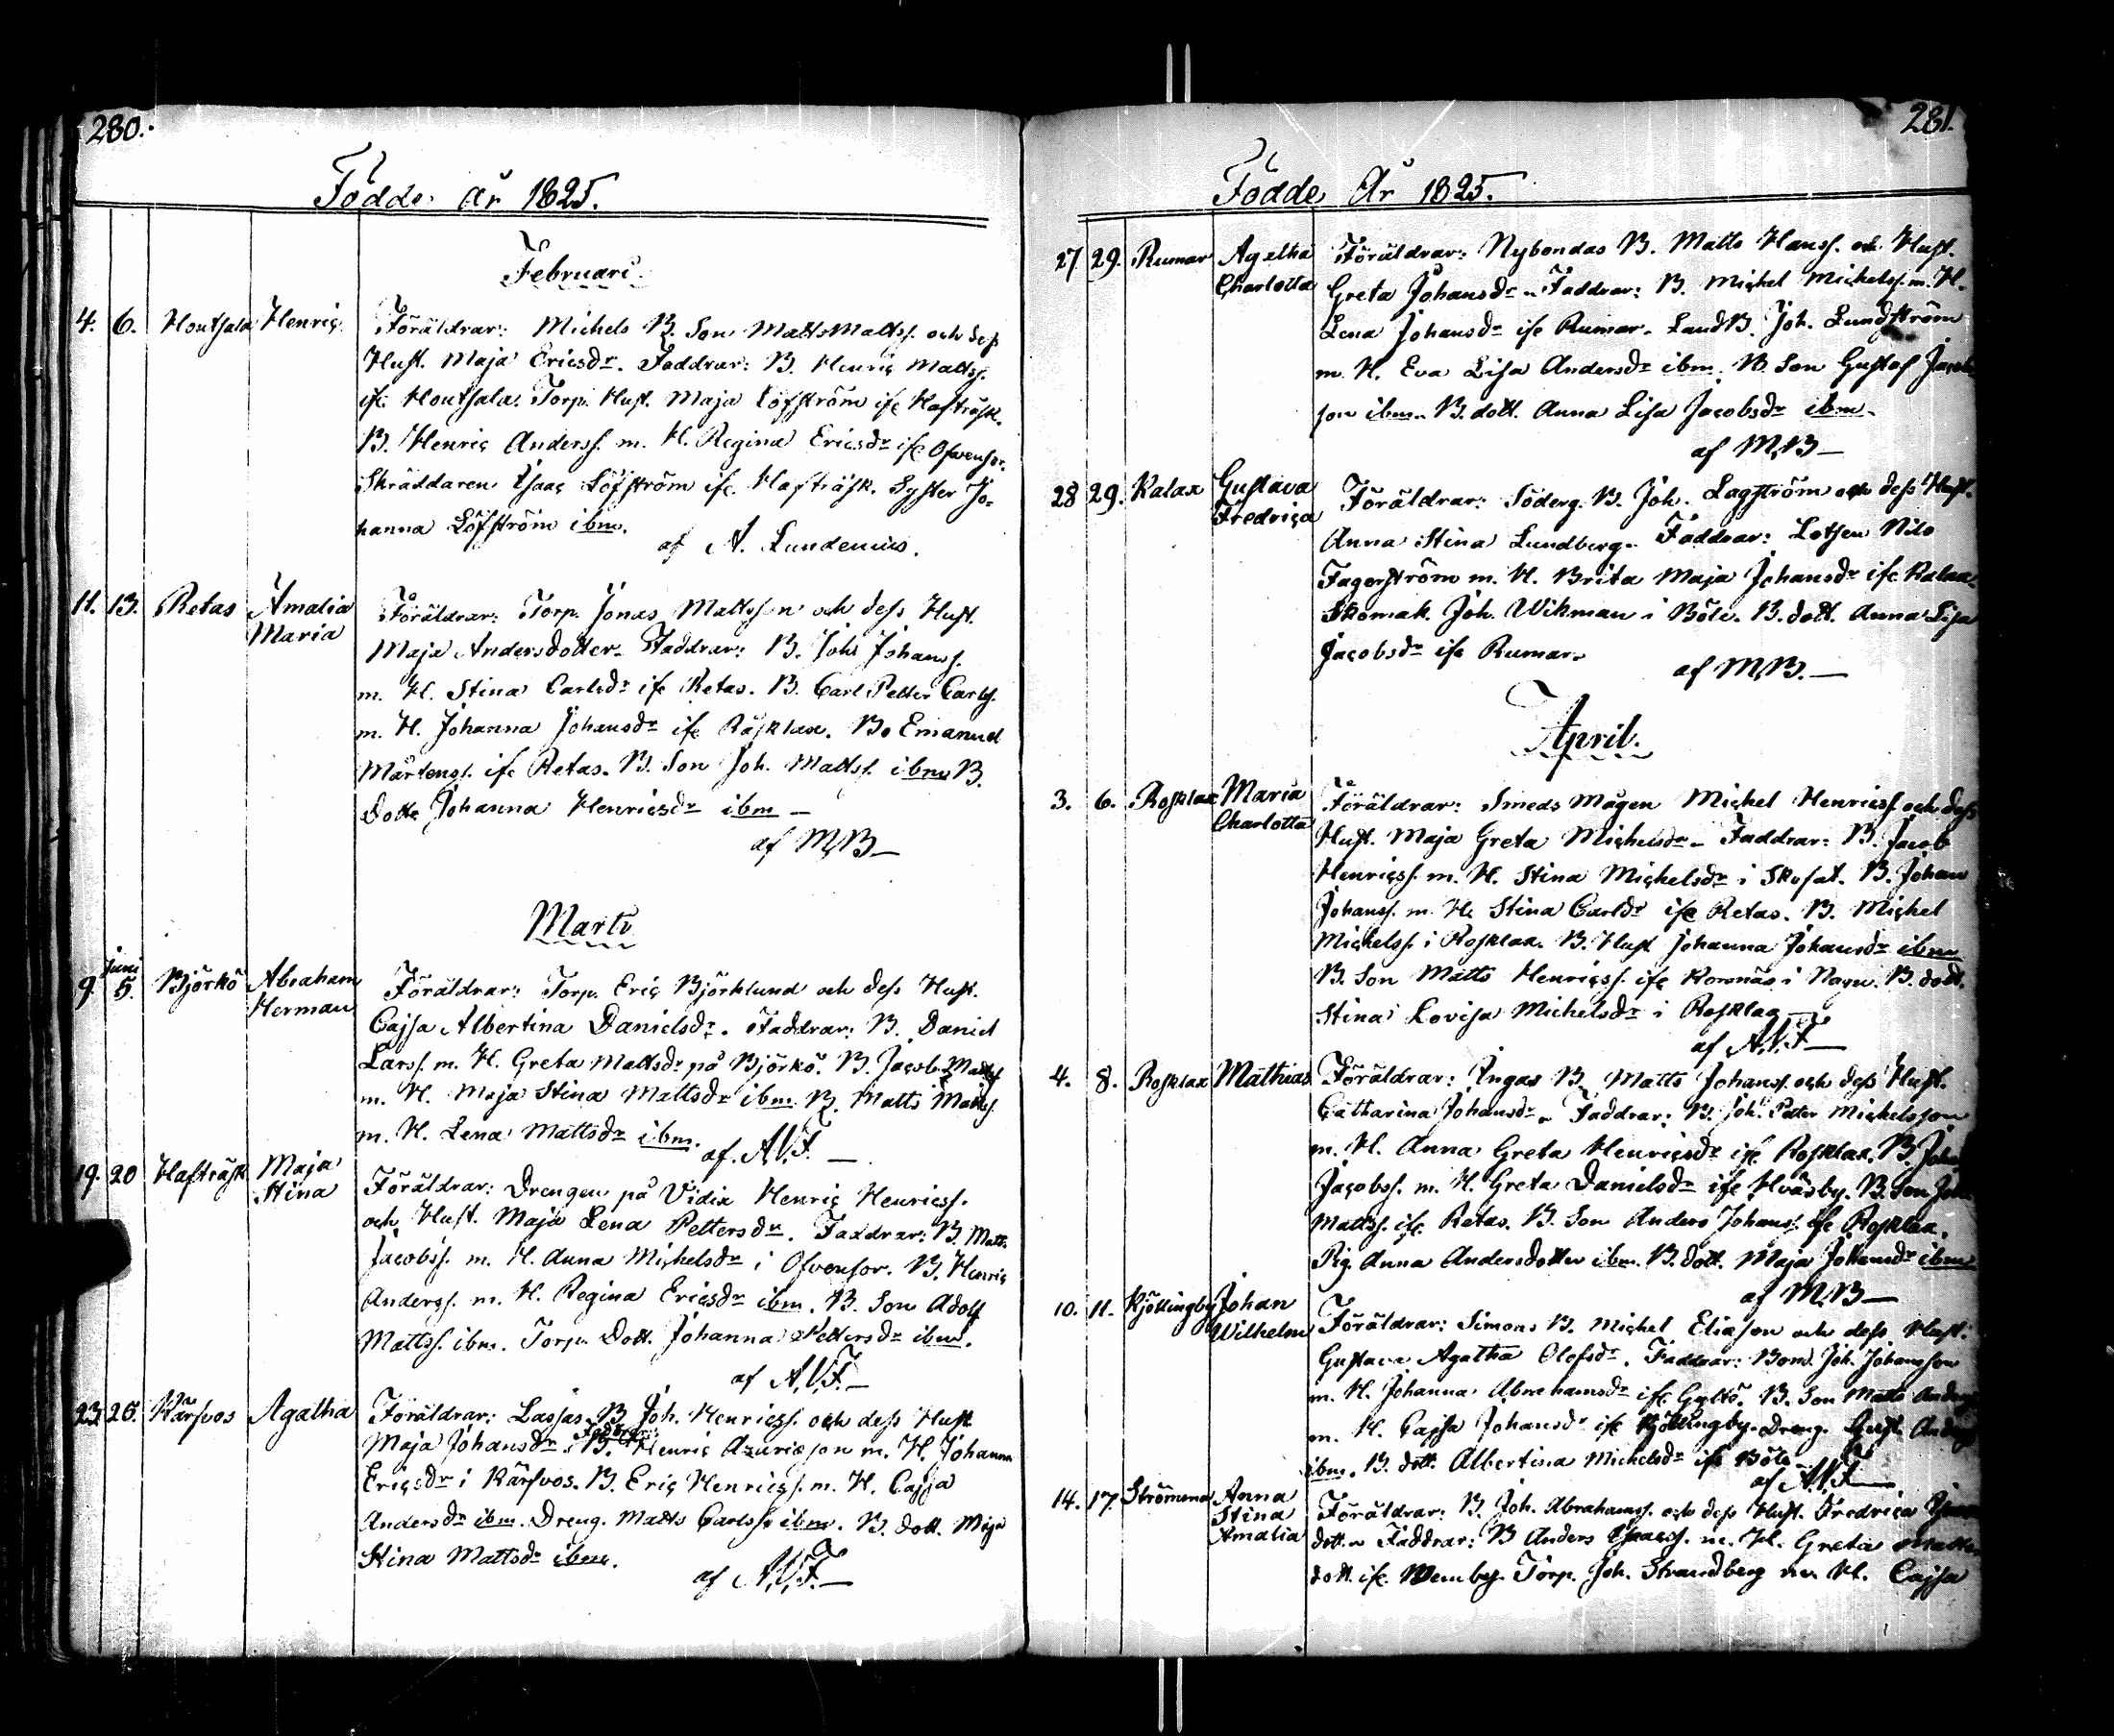 280.
Födde år 1825.
Februari.
4. 6. Houtsala Henric. Föräldrar: Michels B. Son Matts Mattss. och dess
Hust. Maja Ericsdr. Faddrar: B. Henric Mattss.
ifr. Houtsala. Torp. Hust. Maja Löfström ifr. Hafträsk.
B. Henric Anderss. m. H. Regina Ericsdr ifr Ofvensor.
Skräddaren Isaac Löfström ifr. Hafträsk. Syster Jo-
hanna Löfström ibm.
af A. Lundenius.
11. 13. Retas Amalia Maria Föräldrar: Torp. Jonas Mattsson och dess Hust.
Maja Andersdotter. Faddrar: B. Joh. Johanss.
m. H. Stina Carlsdr ifr Retas. B. Carl Petter Carlss.
m. H. Johanna Johansdr ifr Räsklax. B. Emanuel
Mårtenss. ifr Retas. B. Son Joh. Mattss. ibm B.
Dottr Johanna Henricsdr ibm –
af M.B –
Marti
9. Juni 5. Björkö Abraham Herman Föräldrar: Torp. Eric Björklund och dess Hust.
Cajsa Albertina Danielsdr. Faddrar: B. Daniel
Larss. m. H. Greta Mattsdr på Björkö. B. Jacob Mattss
m. H. Maja Stina Mattsdr ibm B. Matts Mattss.
m. H. Lena Mattsdr ibm.
af. A.V.F. –
19. 20 Hafträsk Maja Stina Föräldrar: Drengen på Vidix Henric Henricss.
och Hust. Maja Lena Pettersdr. Faddrar: B. Matts
Jacobss. m. H. Anna Michelsdr i Ofvensor. B. Henric
Anderss. m. H. Regina Ericsdr ibm. B. Son Adolf
Mattss. ibm. Torp. Dott. Johanna Pettersdr ibm.
af A.V.F. –
23 25. Kärfvos Agatha Föräldrar: Lassas B. Joh. Henricss. och dess Hust
Maja Johansdr. Faddrar: B. Henric Azuricson m. H. Johanna
Ericsdr i Kärfvos. B. Eric Henricss. m. H. Cajsa
Andersdr ibm. Dreng. Matts Carlss ibm. B. dott. Maja
Stina Mattsdr ibm.
af A.V.F. –
281.
Födde År 1825.
27 29. Rumar Agatha Charlotta Föräldrar: Nybondas B. Matts Hanss. och Hust.
Greta Johansdr. Faddrar: B. Michel Michelss. m. H.
Lena Johansdr ifr Rumar. LandB. Joh. Lundström
m. H. Eva Lisa Andersdr ibm. B. Son Gustaf Jacob
son ibm. B. dott. Anna Lisa Jacobsdr ibm.
af M.B –
28 29. Kalax Gustava Fredrica Föräldrar: Söderg. B. Joh. Lagström och dess Hust.
Anna Stina Lundberg. Faddrar: Lotsen Nils
Fagerström m. H. Brita Maja Johansdr ifr Kalax.
Skomak. Joh. Wikman i Böle. B. dott. Anna Lisa
Jacobsdr ifr Rumar.
af M.B. –
April.
3. 6. Rosklax Maria Charlotta Föräldrar: Smeds Mågen Michel Henricss. och dess
Hust. Maja Greta Michelsdr. Faddrar: B. Jacob
Henricss. m. H. Stina Michelsdr i Skofat. B. Johan
Johanss. m. H. Stina Carlsdr ifr Retas. B. Michel
Michelss. i Rosklax. B. Hust Johanna Johansdr ibm
B. Son Matts Henricss. ifr Kornäs i Nagu. B. dott.
Stina Lovisa Michelsdr i Rosklax
af A.V.F –
4. 8. Rosklax Mathias Föräldrar: Ingas B. Matts Johanss. och dess Hust.
Catharina Johansdr. Faddrar: B. Joh. Petter Michelsson
m. H. Anna Greta Henricsdr ifr Rosklax. B. Johan
Jacobss. m. H. Greta Danielsdr ifr Hväsby. B. Son Joh.
Mattss. ifr. Retas. B. Son Anders Johanss. ifr Rosklax.
Pig. Anna Andersdotter ibm. B. dott. Maja Johansdr ibm
af M.B –
10. 11. Kjöttingby Johan Wilhelm Föräldrar: Simons B. Michel Eliason och dess Hust.
Gustava Agatha Olofsdr. Faddrar: Bond. Joh. Johansson
m. H. Johanna Abrahamsdr ifr Gyltö. B. Son Matts Anderss
m. H. Cajsa Johansdr ifr Kjöttingby. Dreng. Gust. Anderss
ibm. B. dott. Albertina Michelsdr ifr Böle.
af A.V.F –
14. 17. Strömma Anna Stina Amalia Föräldrar: B. Joh. Abrahamss. och dess Hust. Fredrica
dott. Faddrar: B Anders Isaacss. m. H. Greta Matts
dott. ifr. Wemby. Torp. Joh. Strandberg m H. Cajsa